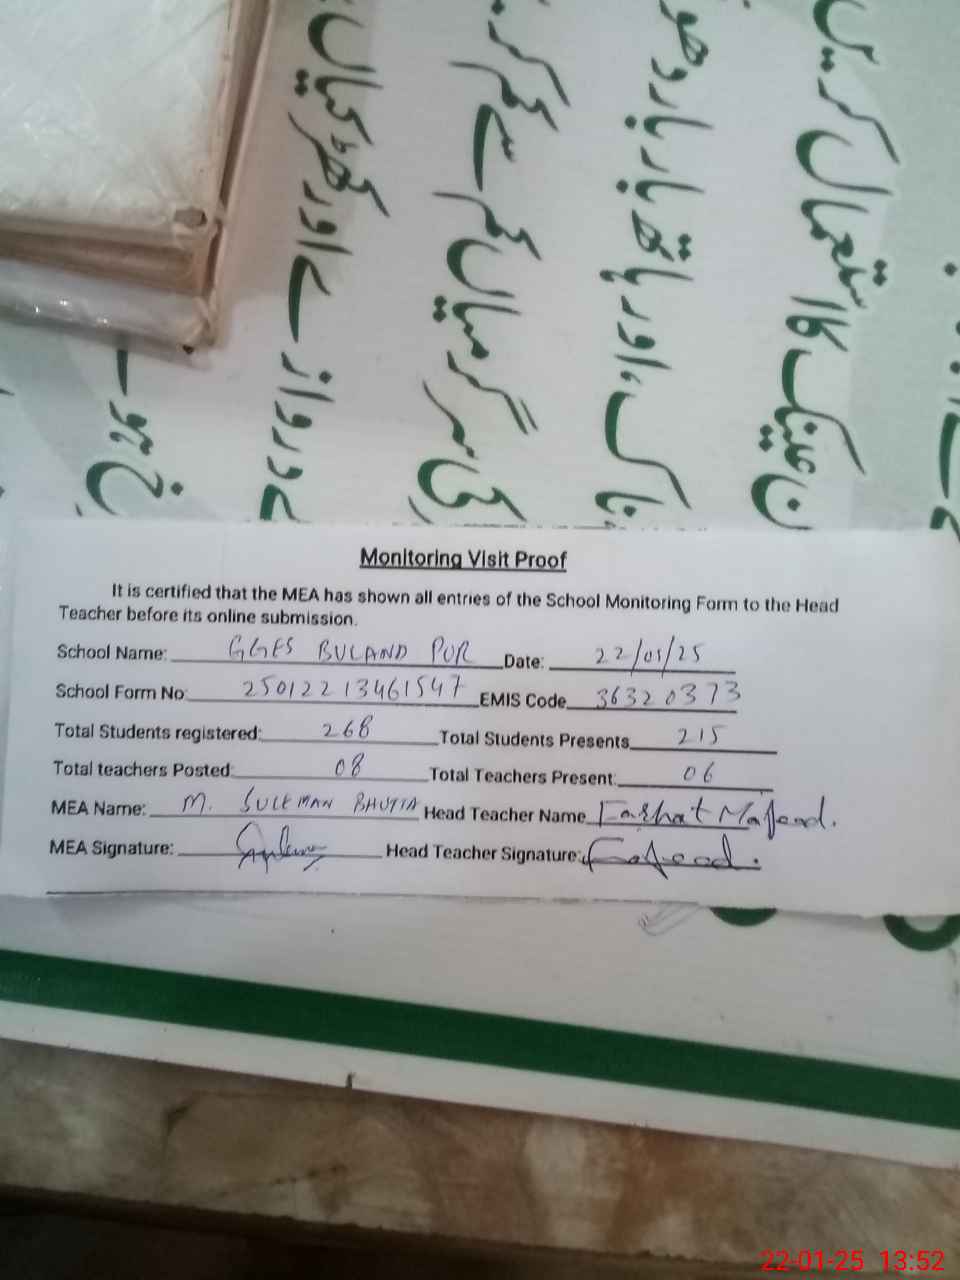 دروازے اور کھڑکیاں
کی سرگرمیاں کم سے کم کر
ناک، اور ہاتھ بار بار دھو
عینک کا استعمال کریں
Monitoring Visit Proof
It is certified that the MEA has shown all entries of the School Monitoring Form to the Head
Teacher before its online submission.
School Name: GGES BULAND PUR Date: 22/01/25
School Form No: 25012213461547 EMIS Code 36320373
Total Students registered: 268 Total Students Presents 215
Total teachers Posted: 08 Total Teachers Present: 06
MEA Name: M. SULEMAN BHUTTA Head Teacher Name Farhat
MEA Signature: Head Teacher Signature:
22-01-25 13:52